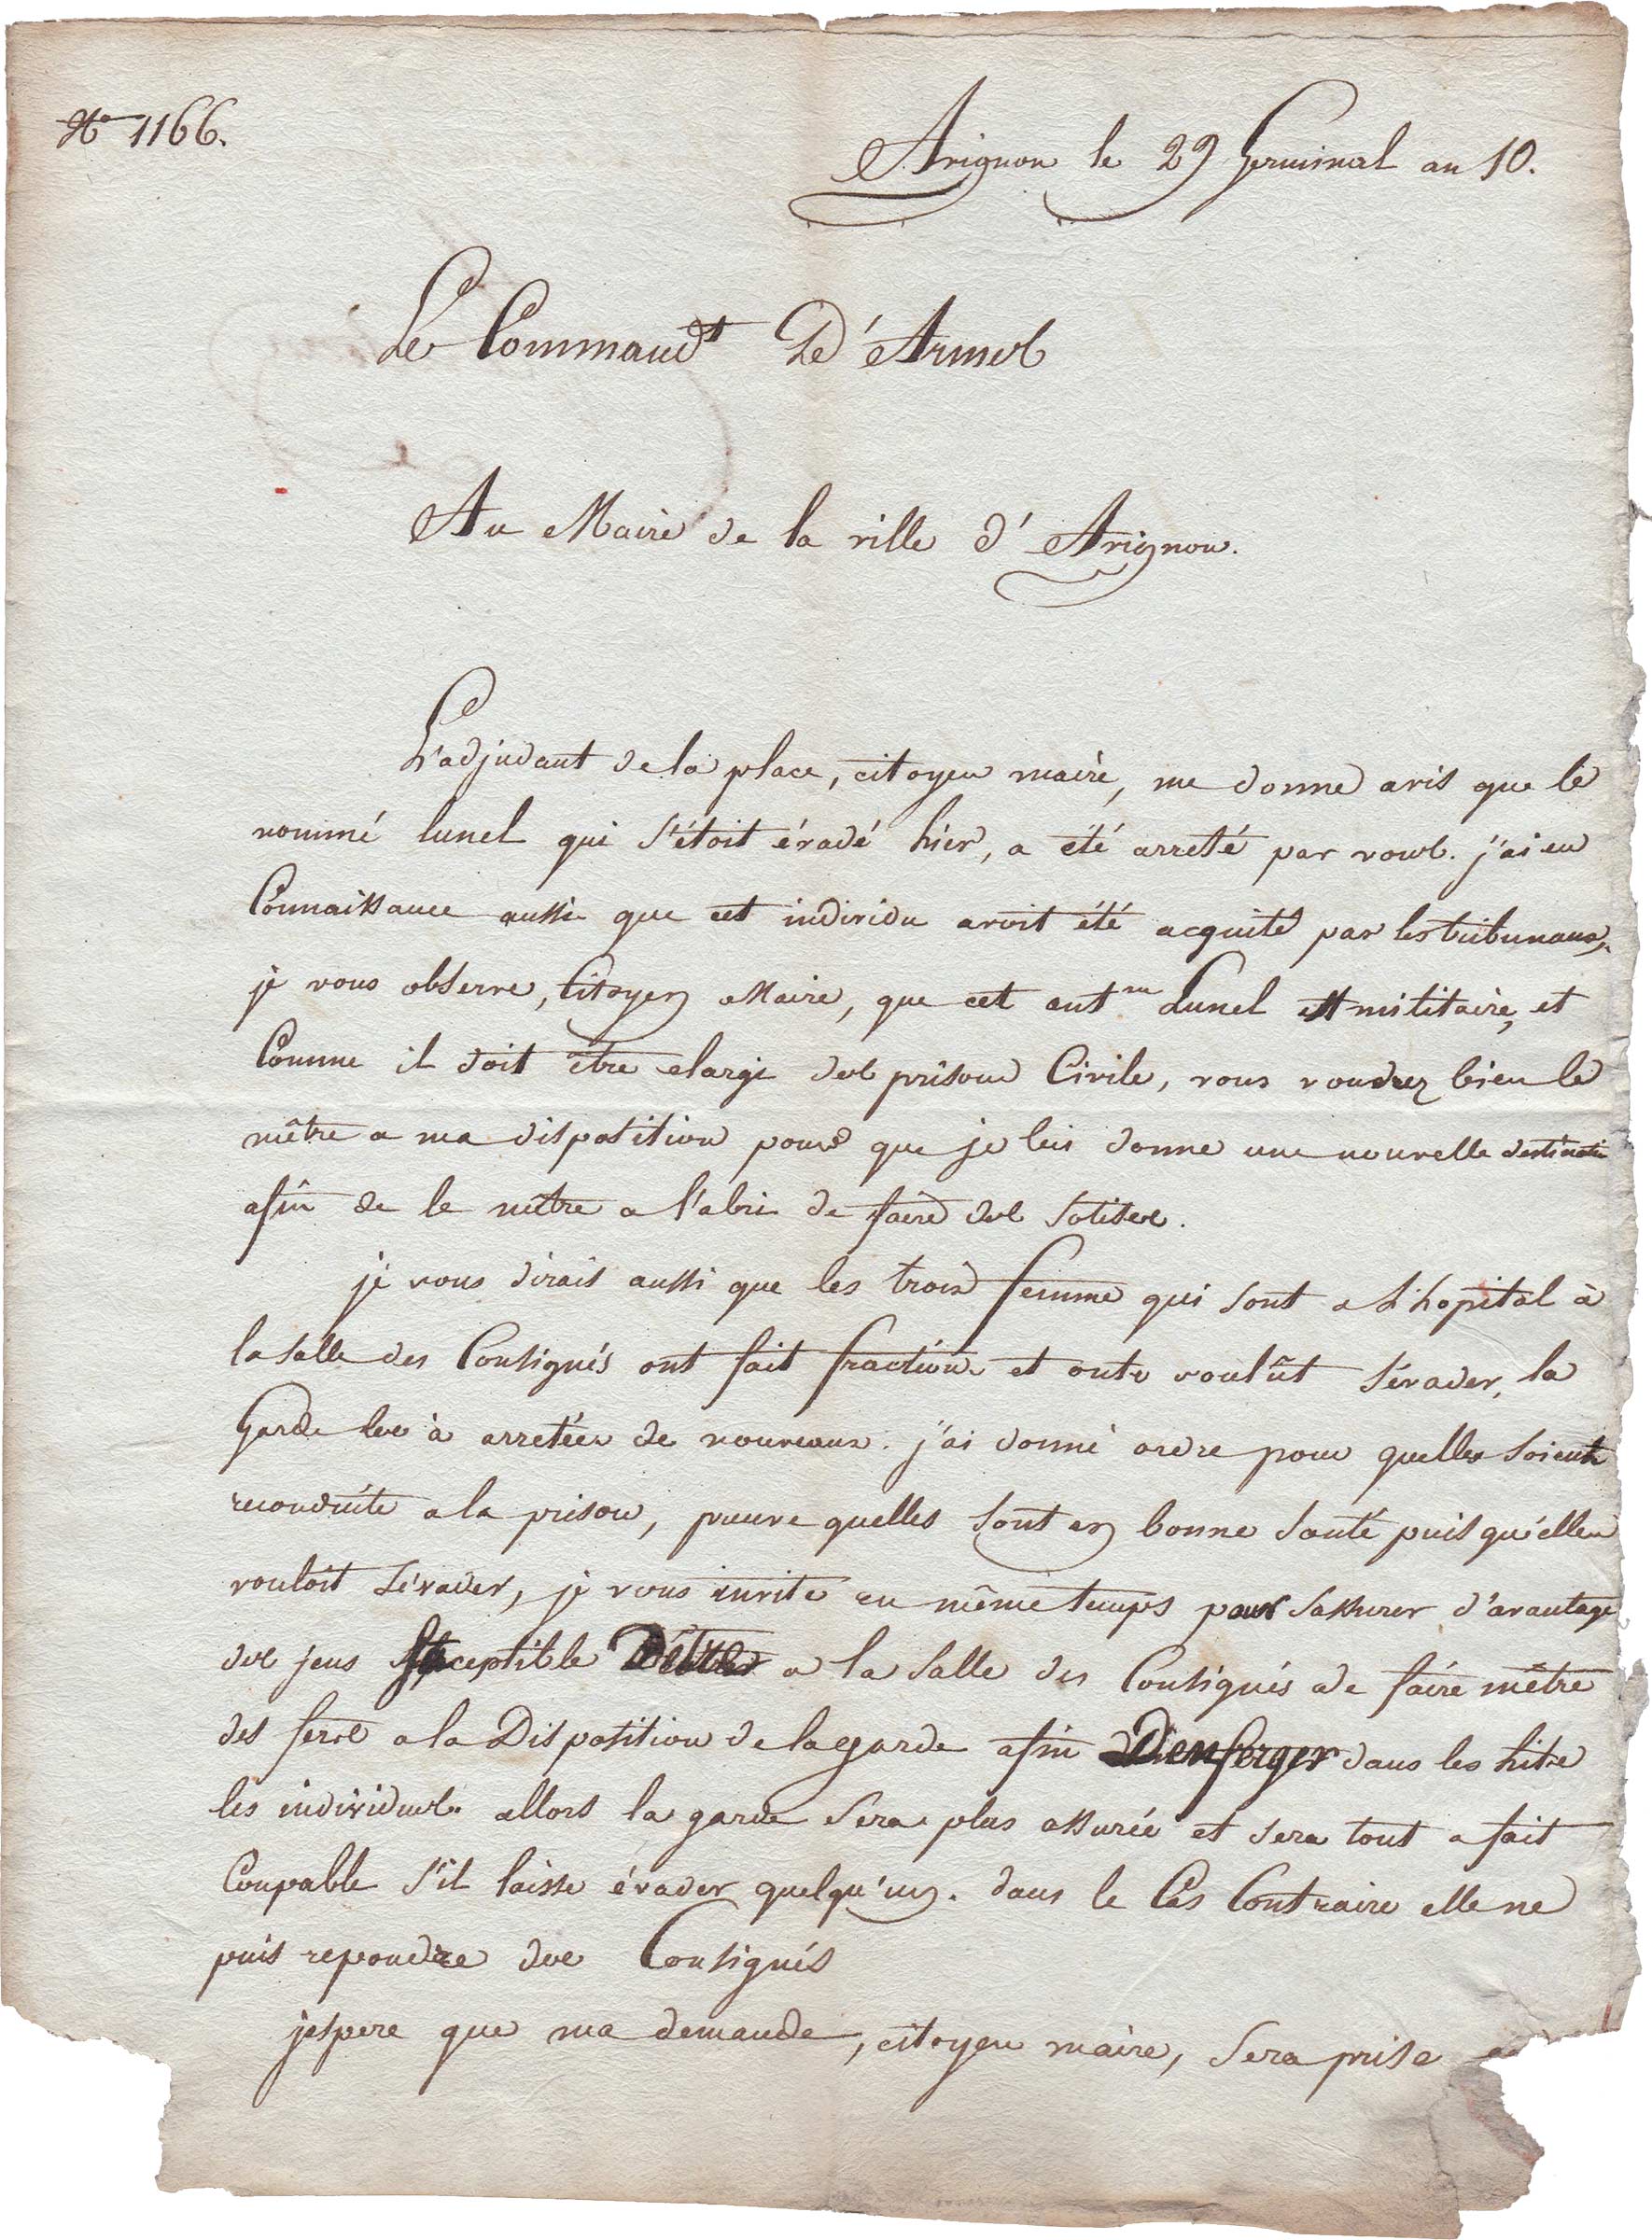 No 1166.
Avignon le 29 Germinal an 10.
Le Commandt D'Armes
Au Maire de la ville d'Avignon.
L'adjudant de la place, citoyen maire, me donne avis que le
nommé lunel qui s'étoit évadé hier, a été arreté par vous. j'ai eu
Connaissance aussi que cet individu avoit été acquité par les tribunaux,
je vous observe, Citoyen Maire, que cet Lunel est militaire, et
Comme il doit être elargi des prisons Civile, vous voudrez bien le
mêtre a ma disposition pour que je lui donne une nouvelle
afin de le mêtre a l'abri de faire des sotises.
je vous dirais aussi que les trois femme qui sont a L'hopital à
la salle des Consignés ont fait fraction et onte voulût s'évader, la
Garde les à arretées de nouveaux. j'ai donné ordre pour quelles soient
reconduite a la prison, preuve quelles sont en bonne santé puisqu'elles
vouloit s'évader, je vous invite en même temps pour sassurer d'avantage
des jens susceptible D'être a la salle des Consignés de faire mêtre
des fers a la Disposition de la garde afin D'enferger dans les lits
les individus. allors la garde sera plus assurée et sera tout a fait
Coupable s'il laisse évader quelqu'un. dans le Cas Contraire elle ne
puis repondre des Consignés
jespere que ma demande, citoyen maire, sera prise